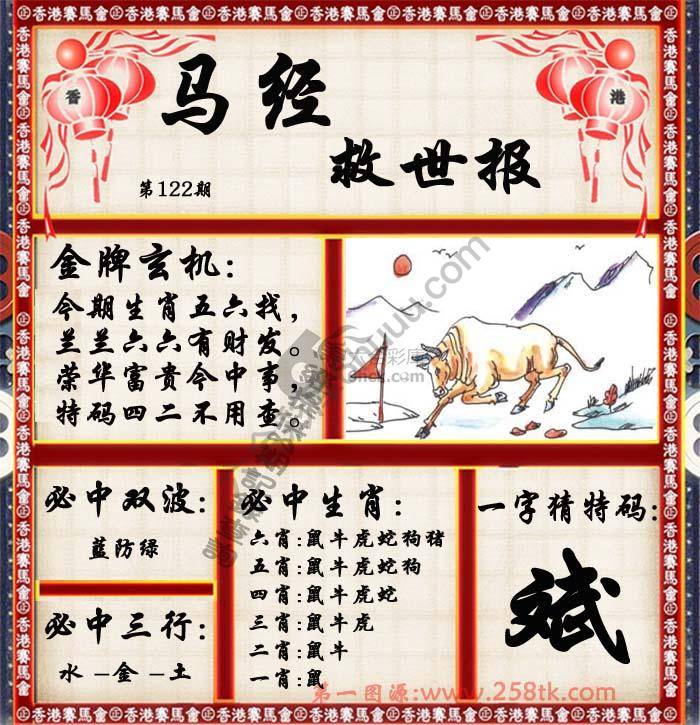 香港賽馬會
香 港
马经
救世报
第122期
金牌玄机：
今期生肖五六找，
兰兰六六有财发。
荣华富贵今中事，
特码四二不用查。
必中双波：
蓝防绿
必中三行：
水–金–土
必中生肖：
六肖:鼠牛虎蛇狗猪
五肖:鼠牛虎蛇狗
四肖:鼠牛虎蛇
三肖:鼠牛虎
二肖:鼠牛
一肖:鼠
一字猜特码：
斌
第一图源:www.258tk.com